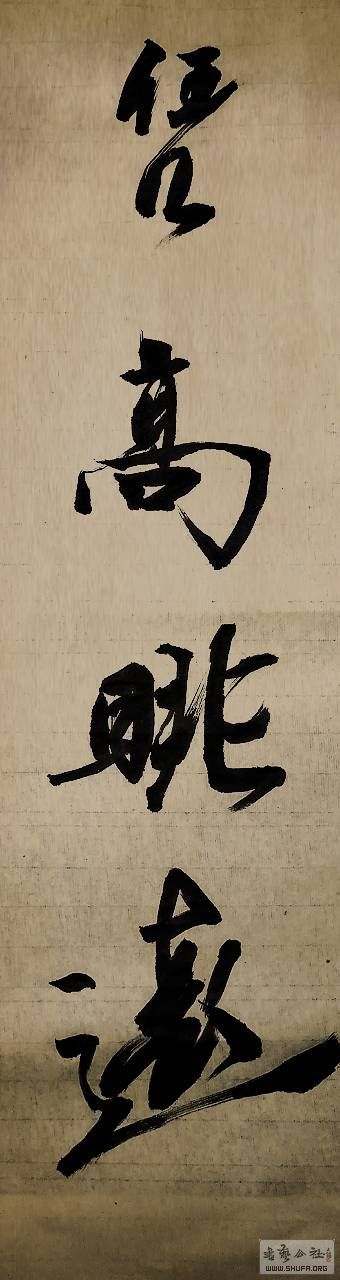 凭
高
眺
遠
書藝公社
WWW.SHUFA.ORG